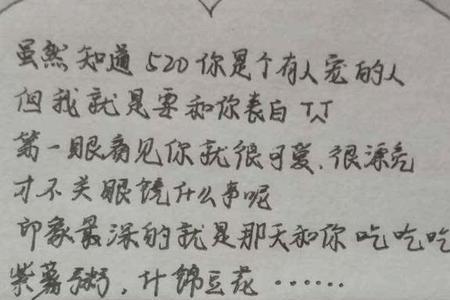 虽然知道520你是个有人宠的人
但我就是要和你表白TAT
第一眼看见你就很可爱.很漂亮
才不关眼镜什么事呢
印象最深的就是那天和你吃吃吃
紫薯粥,什锦豆花……